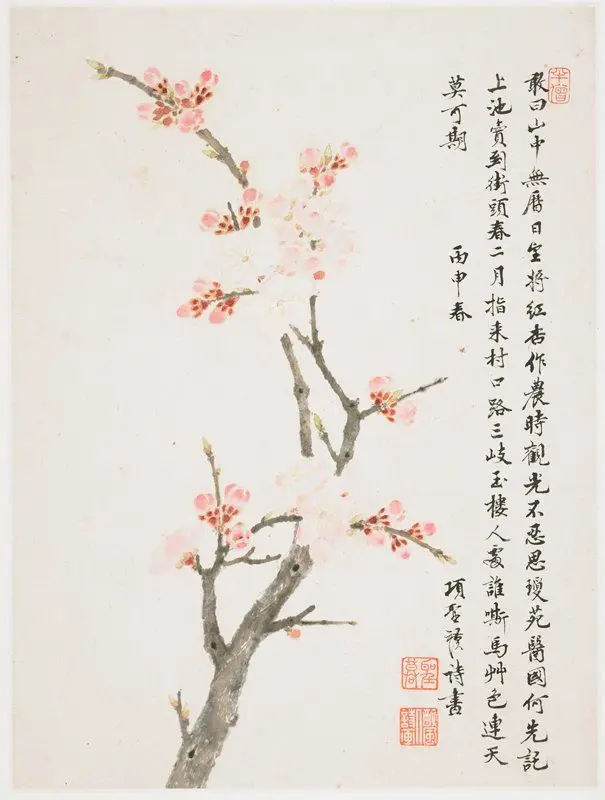 敢曰山中無曆日坐將紅杏作農時觀光不忍思瓊苑醫國何先記
上池賣到街頭春二月指來村口路三岐玉樓人處誰嘶馬艸色連天
莫可期 丙申春 項聖謨詩書